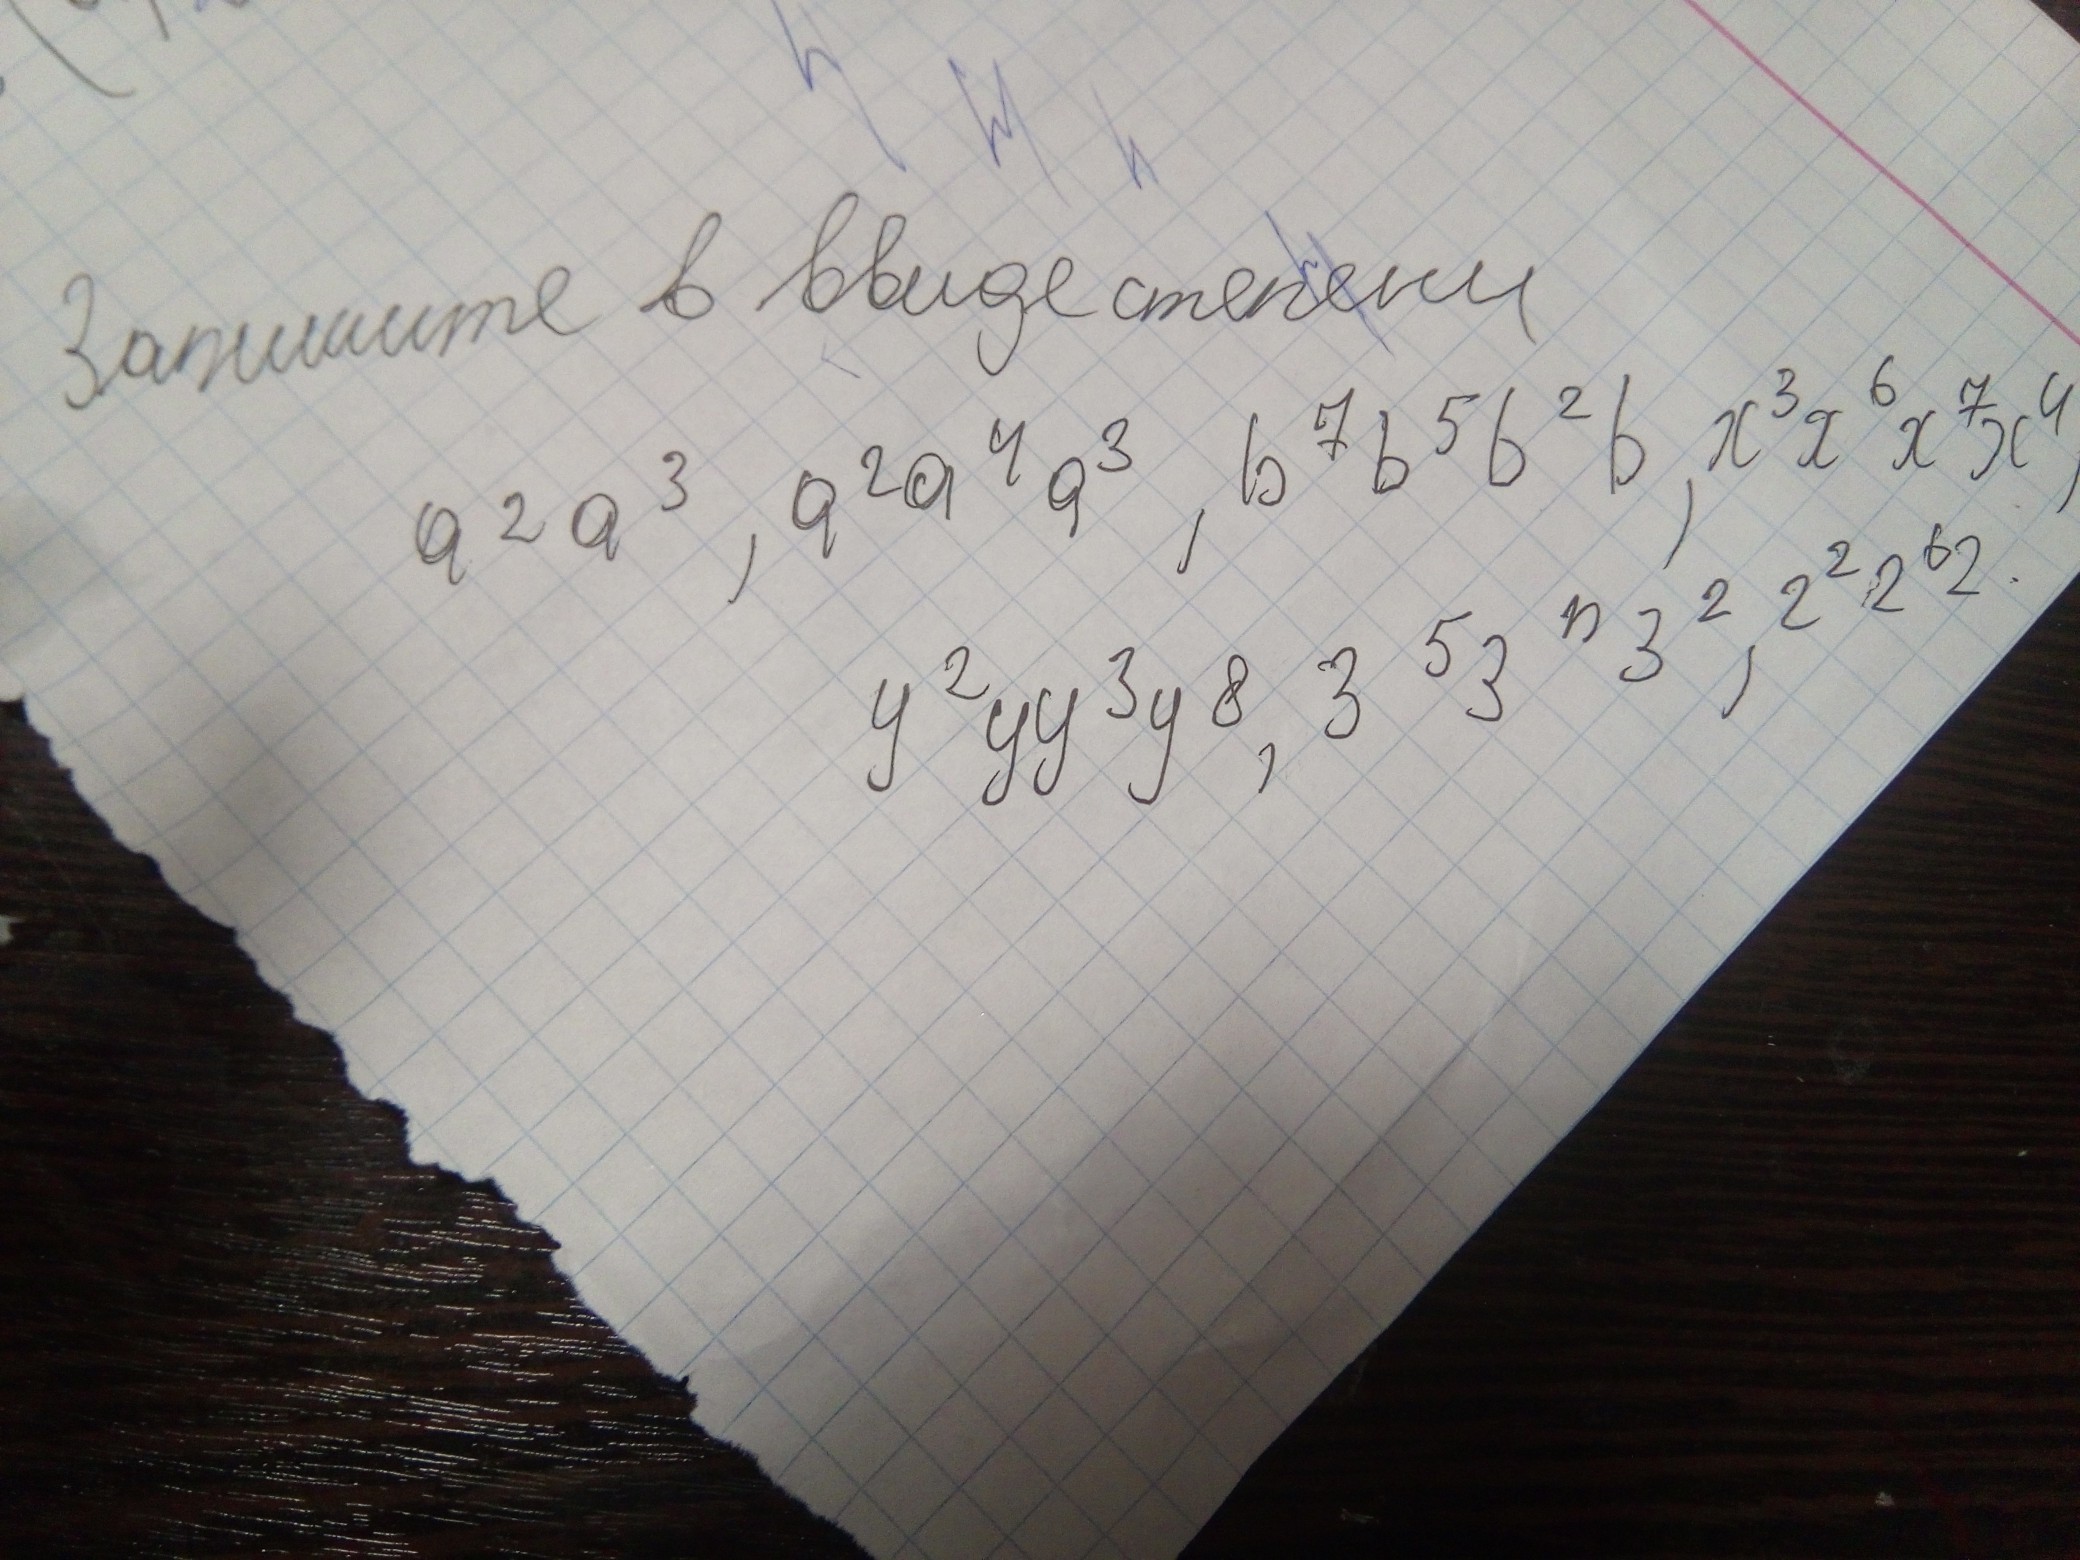 Запишите в ввиде степени
a²a³, a²a⁴a³, b⁷b⁵b²b, x³x⁶x⁷x⁴,
y²yy³y⁸, 3⁵3ⁿ3², 2²2⁶2.